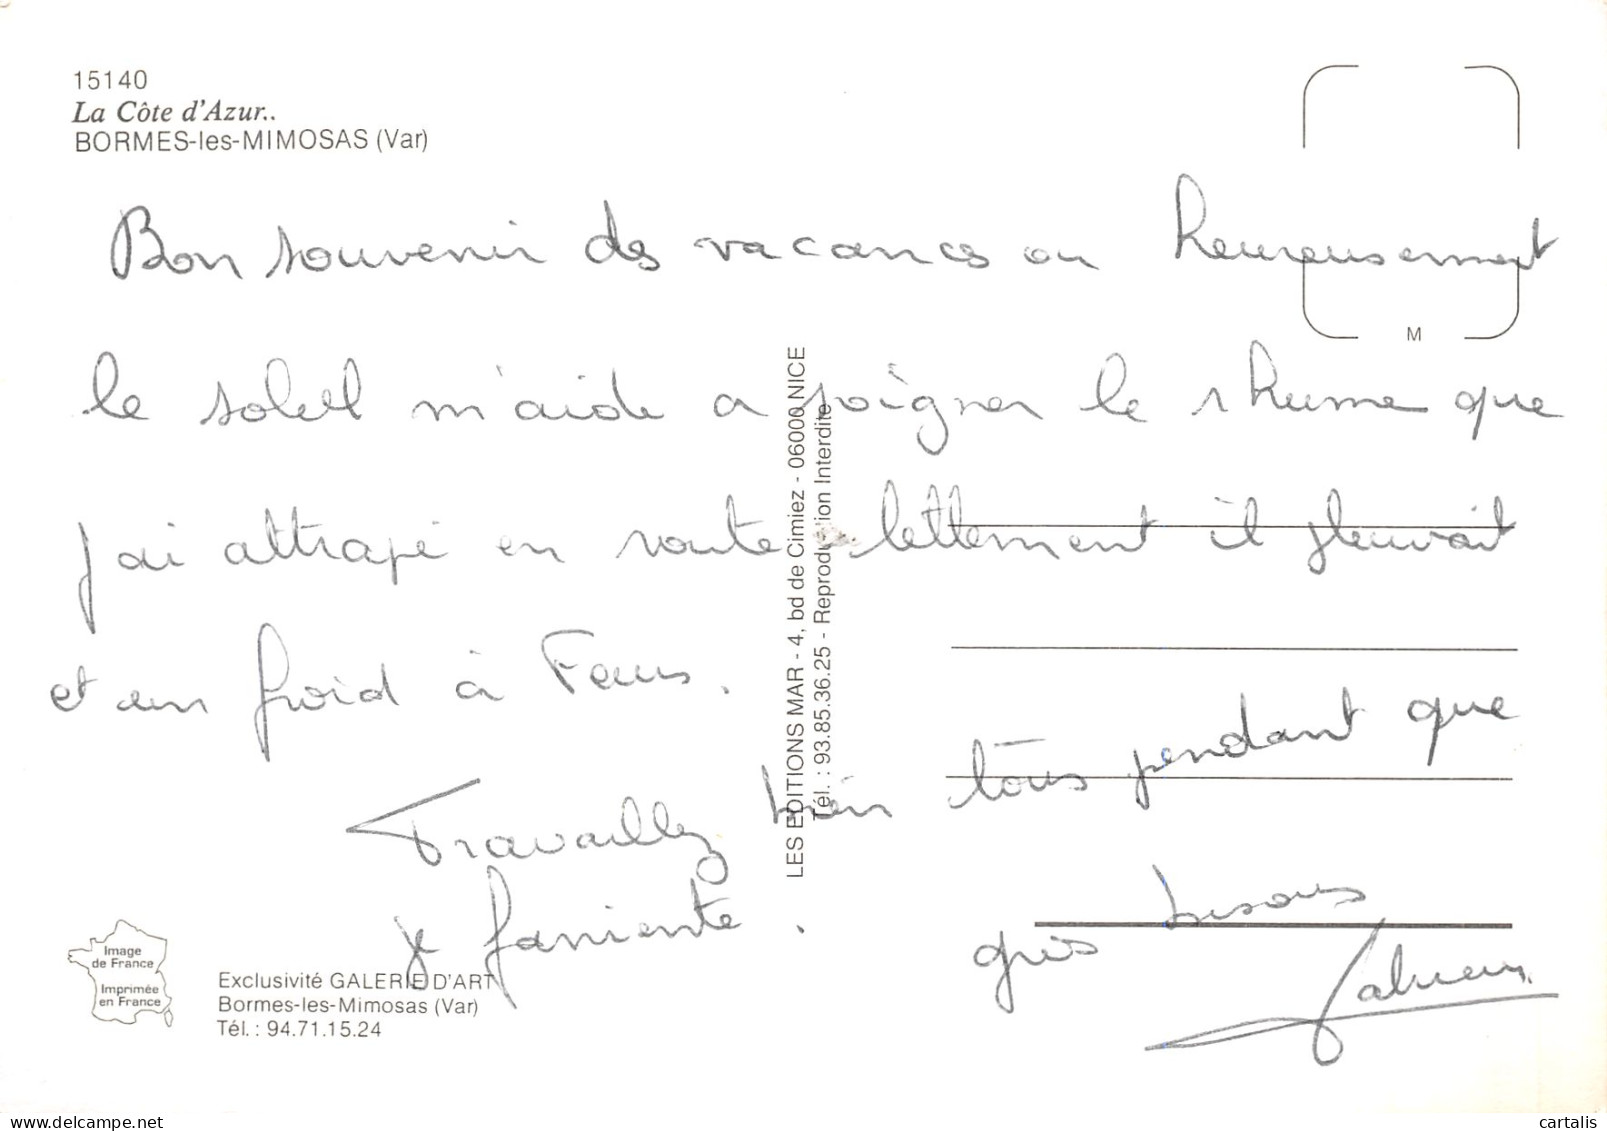 15140
La Côte d'Azur..
BORMES-les-MIMOSAS (Var)
M
Bon souvenir des vacances ou heureusement
le soleil m'aide a soigner le rhume que
j'ai attrapé en route tellement il pleuvait
et un froid à
Travaillez bien tous pendant que
je farniente.
gros bisous
LES EDITIONS MAR - 4, bd de Cimiez - 06000 NICE
Tél. : 93.85.36.25 - Reproduction Interdite
Image
de France
Imprimée
en France
Exclusivité GALERIE D'ART
Bormes-les-Mimosas (Var)
Tél. : 94.71.15.24
cartalis